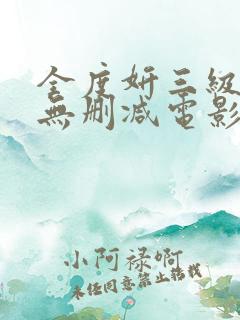 金度妍三級
無删减電影
小阿禄啊
未经同意禁止转载